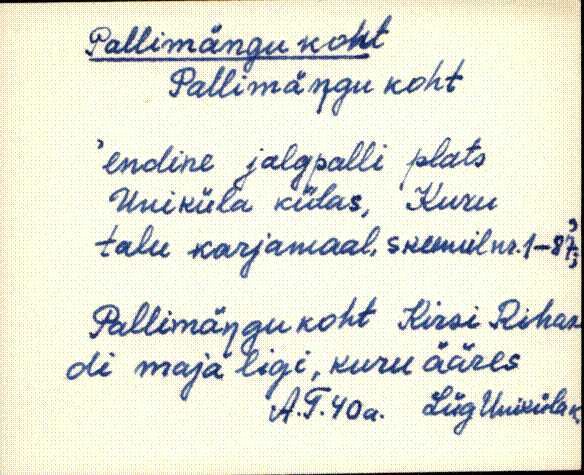 Pallimängu koht
Pallimäŋgu koht
'endine jalgpalli plats
Uniküla külas, Kuru
talu karjamaal, skeemil nr. 1-87;
Pallimäŋgu koht Kirsi Rihar
di maja ligi, kuru ääres
A.T. 40a. Lüg Uniküla k.